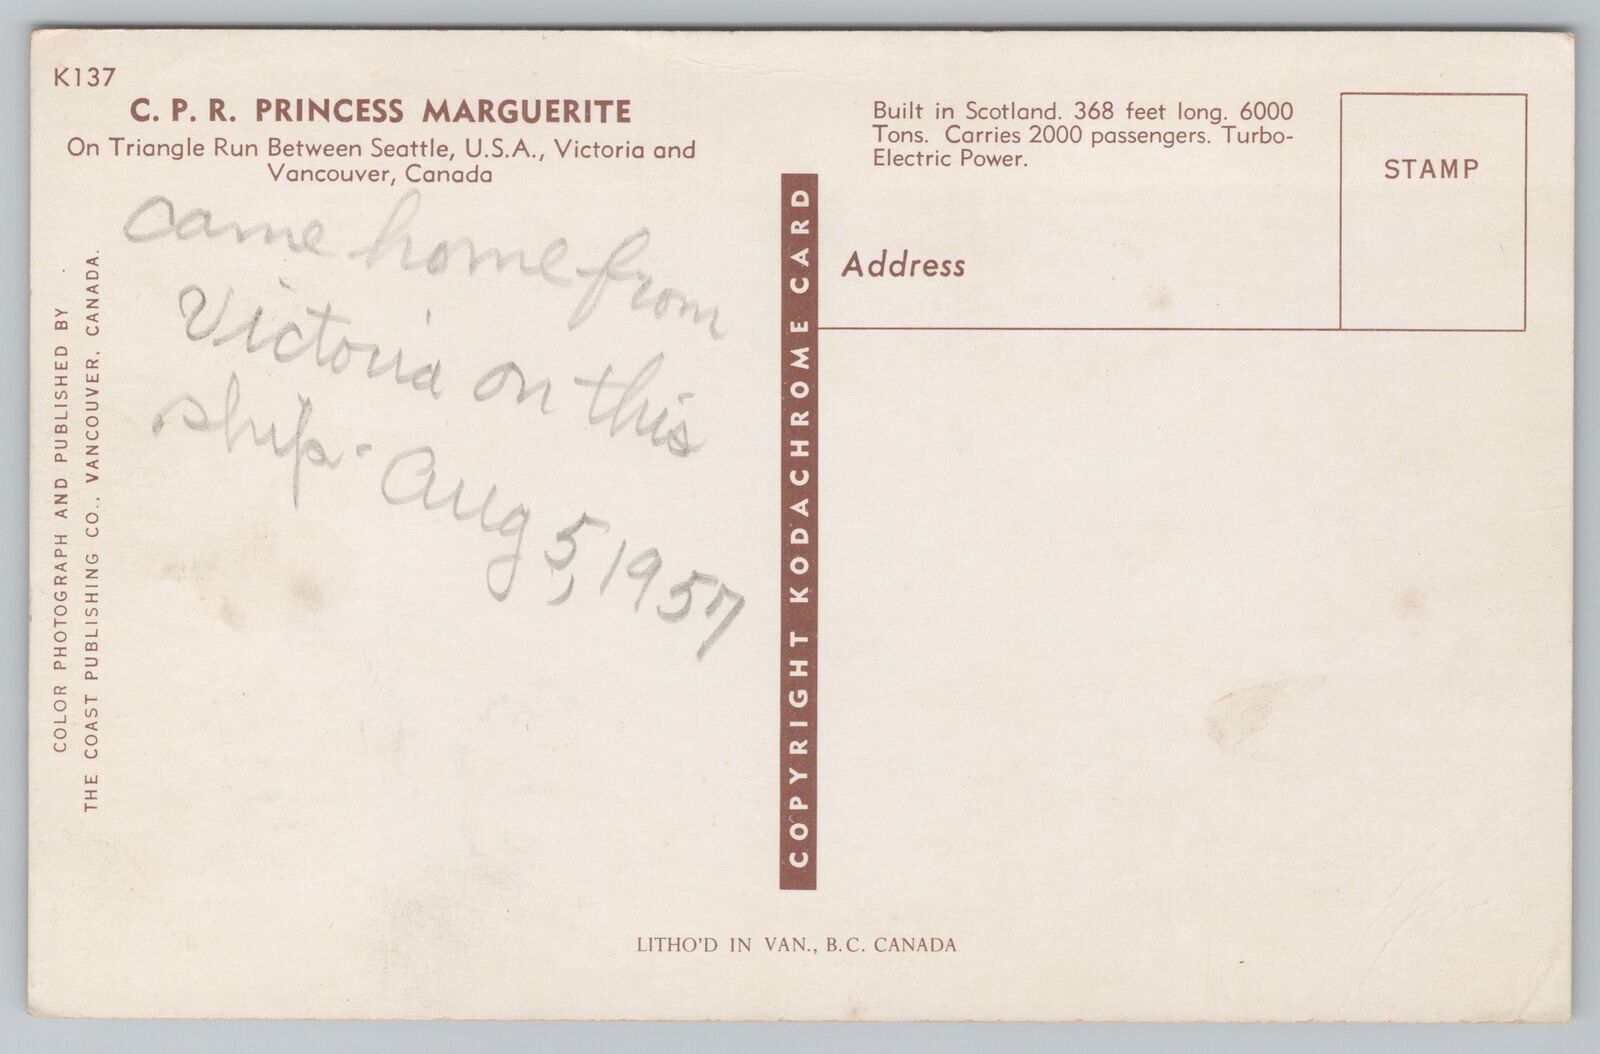 K137
C. P. R. PRINCESS MARGUERITE
On Triangle Run Between Seattle, U.S.A., Victoria and
Vancouver, Canada
came home from
Victoria on this
ship - Aug 5, 1957
COLOR PHOTOGRAPH AND PUBLISHED BY
THE COAST PUBLISHING CO., VANCOUVER, CANADA.
COPYRIGHT KODACHROME CARD
Built in Scotland. 368 feet long. 6000
Tons. Carries 2000 passengers. Turbo-
Electric Power.
STAMP
Address
LITHO'D IN VAN., B.C. CANADA